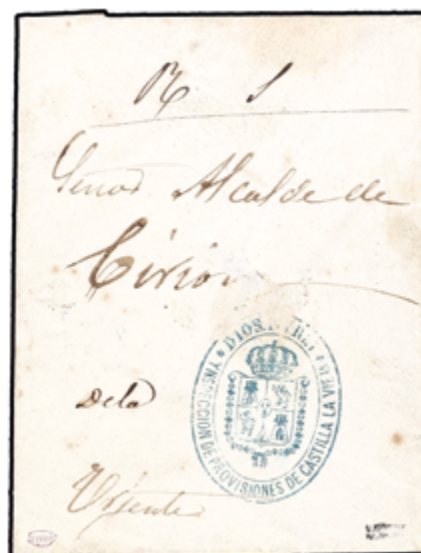 R S
Señor Alcalde de
Cirion
Dela
Urjente
DIOS
YNSPECCION DE PROVISIONES DE CASTILLA LA VIEJA